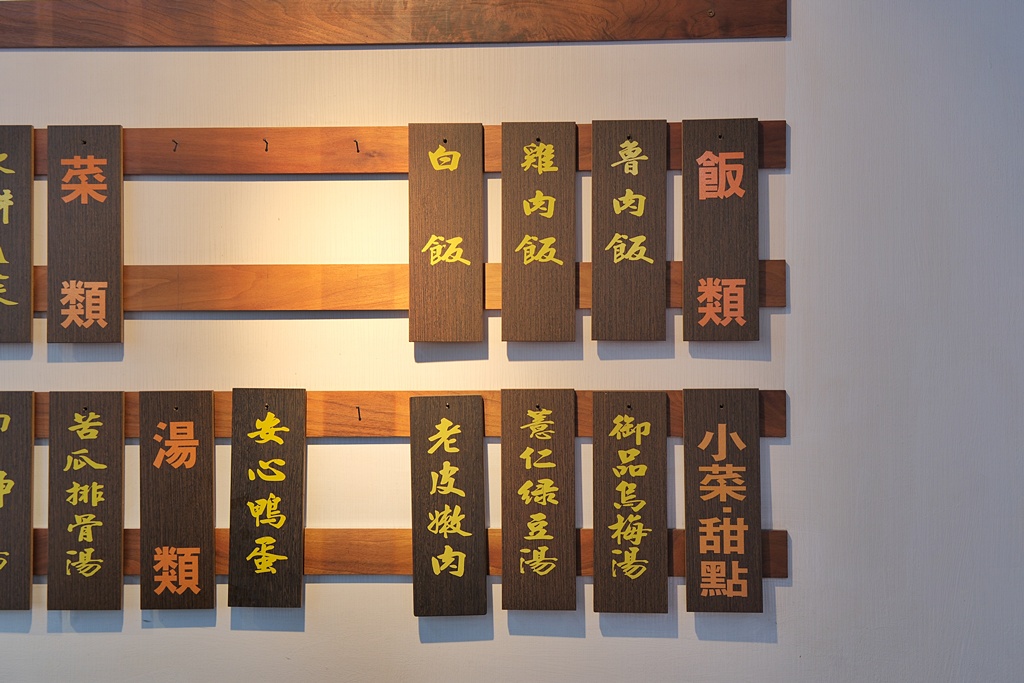 飯類
魯肉飯
雞肉飯
白飯
菜類
小菜·甜點
御品烏梅湯
薏仁綠豆湯
老皮嫩肉
安心鴨蛋
湯類
苦瓜排骨湯